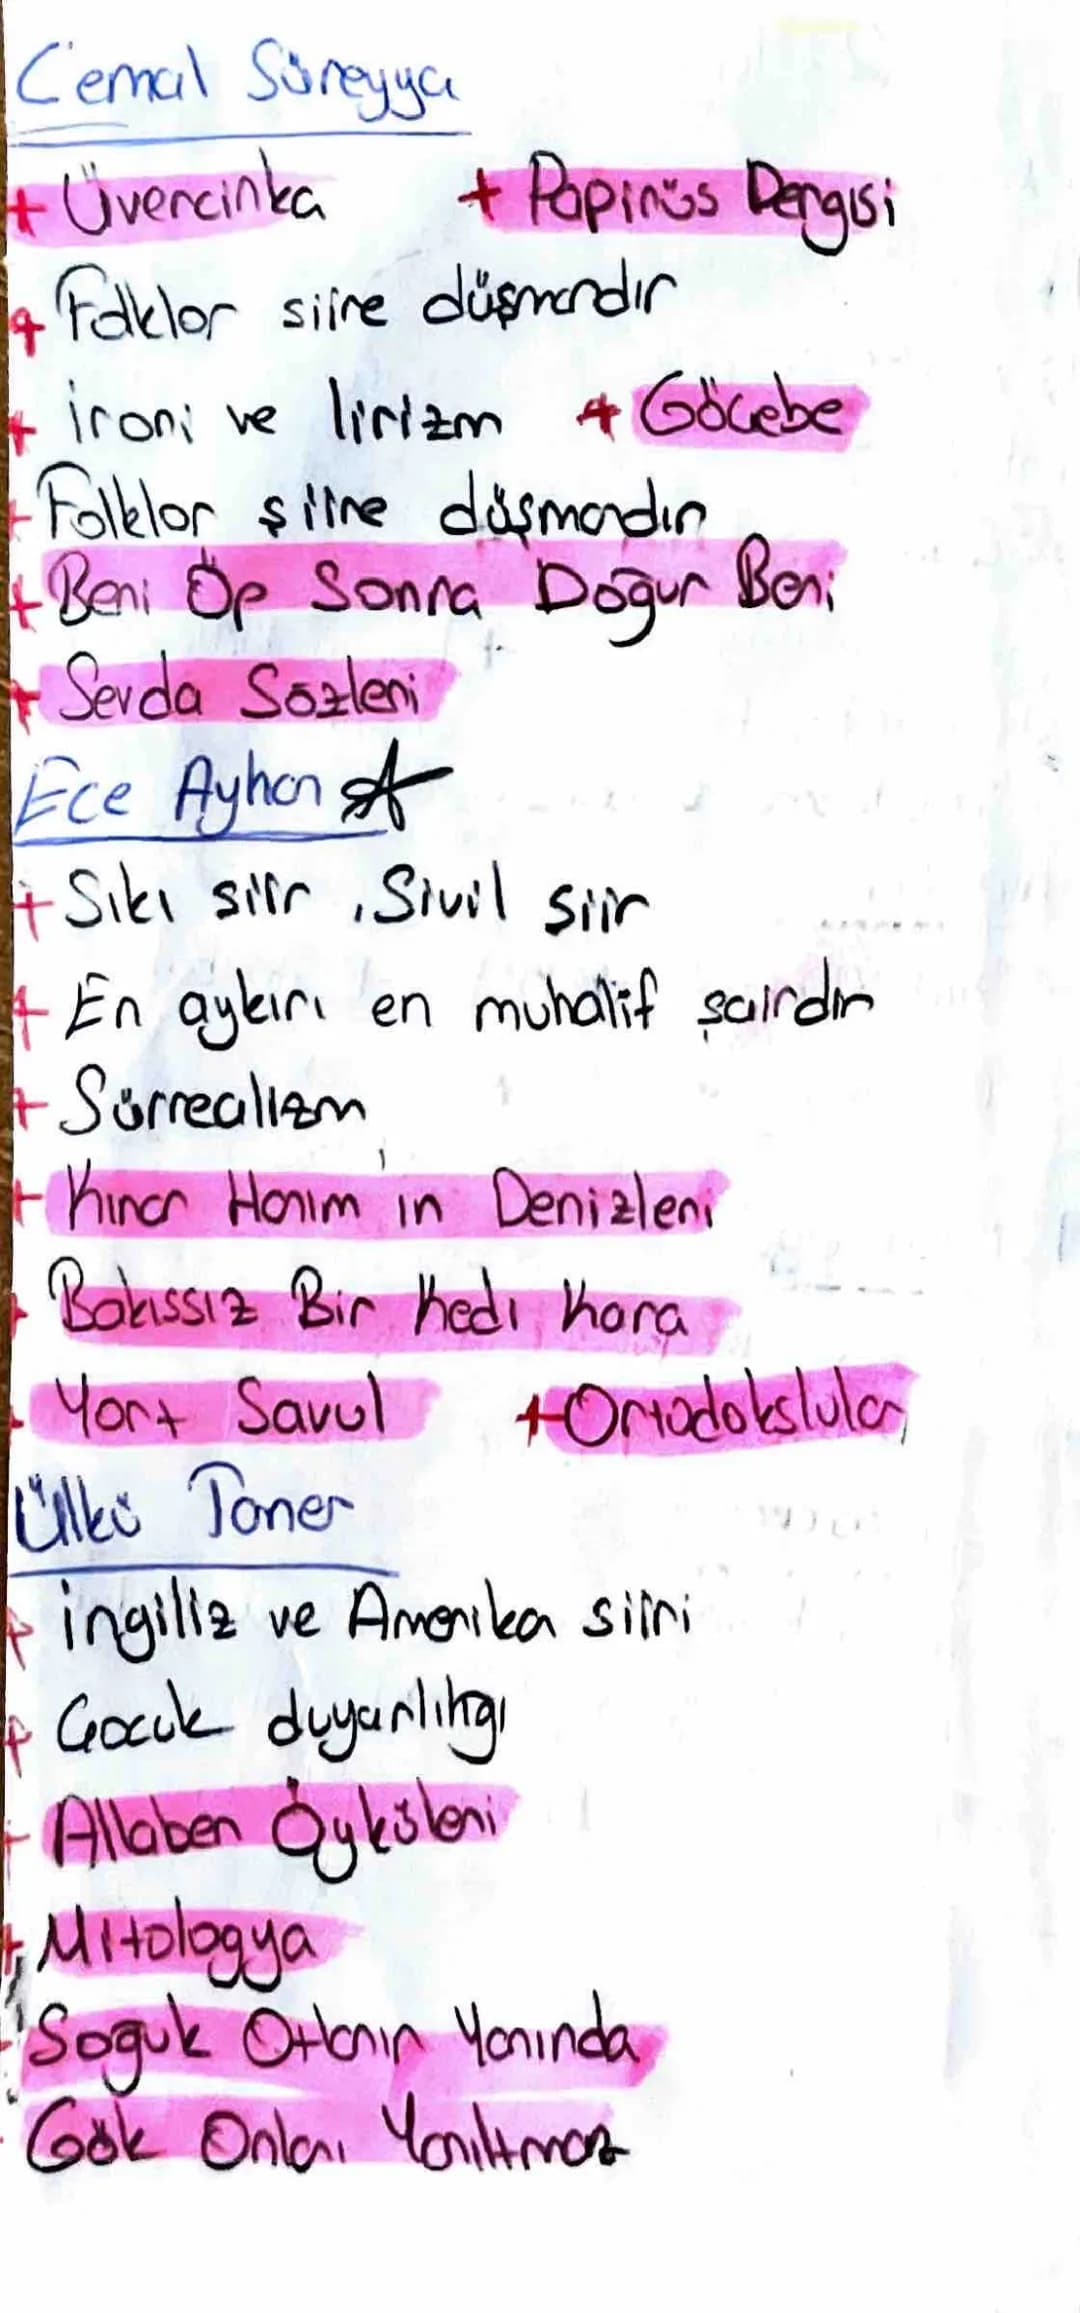 Cemal Süreyya
+ Üvercinka + Papirüs Dergisi
+ Folklor siire düşmandır
+ İroni ve lirizm + Göcebe
+ Folklor şiire düşmandır
+ Beni Öp Sonra Doğur Beni
+ Sevda Sözleri
Ece Ayhan
+ Sıkı siir, Sivil siir
+ En aykırı en muhalif şairdir
+ Sürrealizm
+ Kınar Hanım'ın Denizleri
+ Bakıssız Bir Kedi Kara
+ Yort Savul + Ortodoksluklar
Ülkü Tamer
+ İngiliz ve Amerika siiri
+ Çocuk duyarlılığı
+ Allaben Öyküleri
+ Mitologya
+ Soguk Otların Yanında
Gök Onları Yanıltmaz